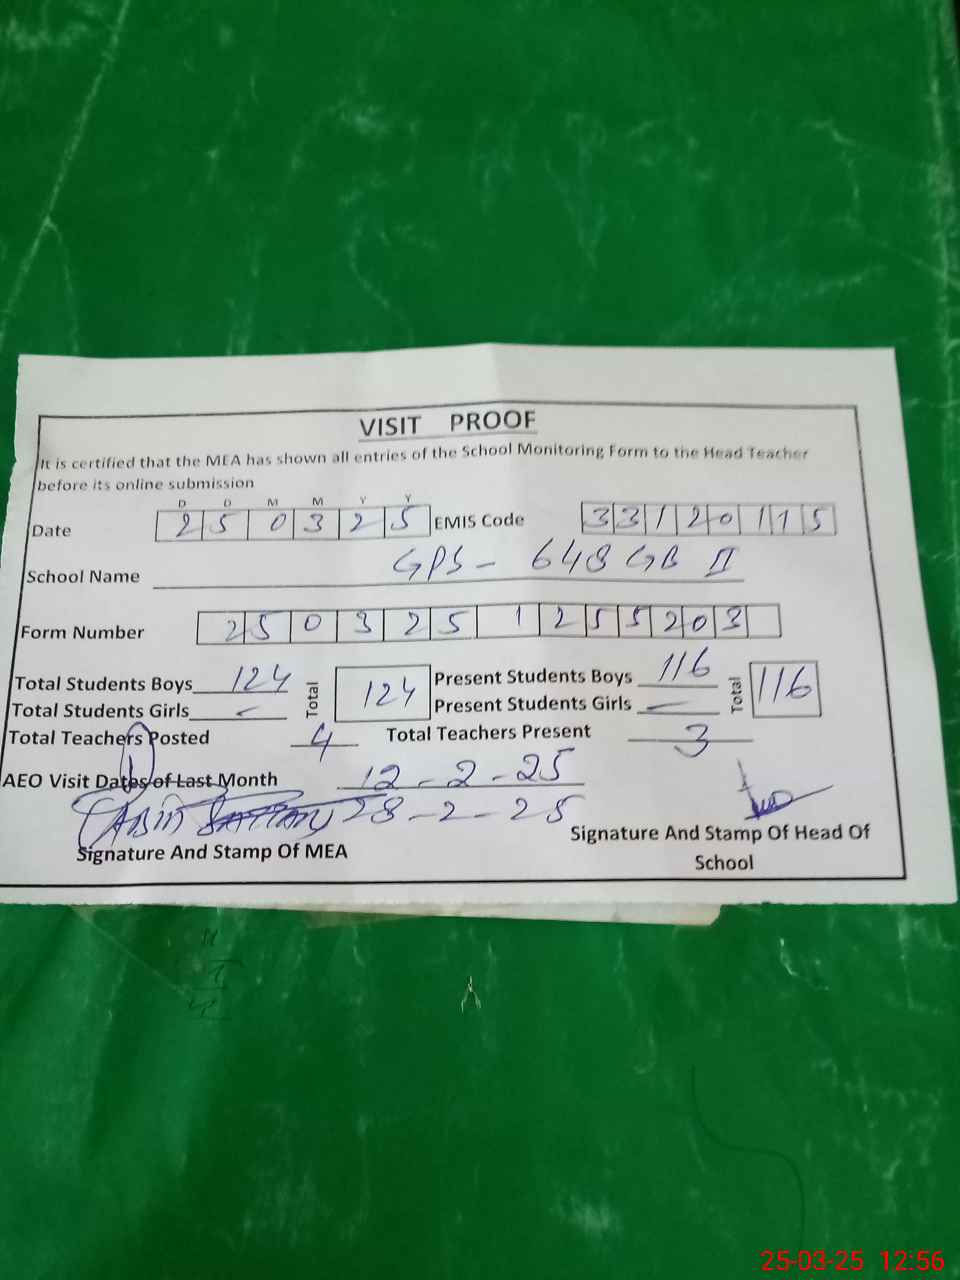 VISIT PROOF
It is certified that the MEA has shown all entries of the School Monitoring Form to the Head Teacher
before its online submission
D D M M Y Y
Date 25 03 25 EMIS Code 33120115
School Name GPS - 648 GB II
Form Number 250325 1255203
Total Students Boys 124 Total 124 Present Students Boys 116 Total 116
Total Students Girls - Present Students Girls -
Total Teachers Posted 4 Total Teachers Present 3
AEO Visit Dates of Last Month 12-2-25
28-2-25
Signature And Stamp Of MEA
Signature And Stamp Of Head Of
School
25-03-25 12:56